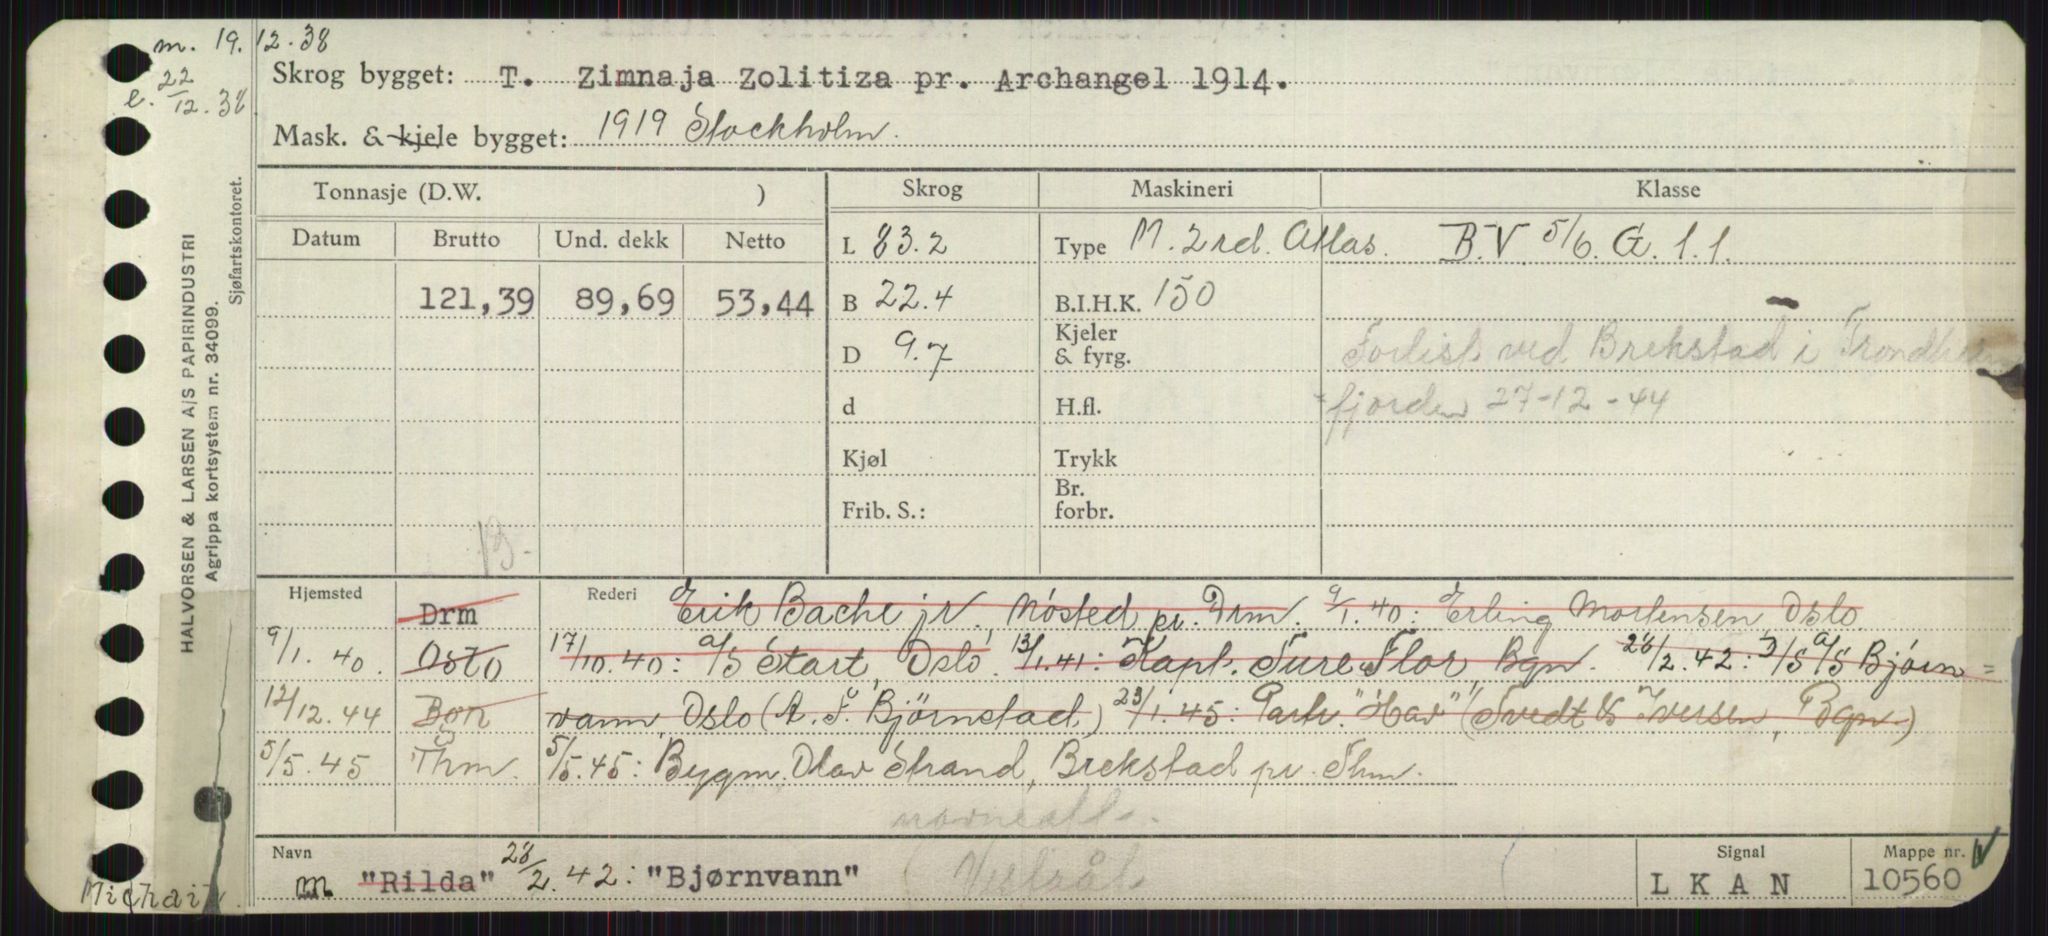 m. 19.12.38
e. 22/12.38
Skrog bygget: T. Zimnaja Zolitiza pr. Archangel 1914.
Mask. & kjele bygget: 1919 Stockholm.
HALVORSEN & LARSEN A/S PAPIRINDUSTRI
Agrippa kortsystem nr. 34099.
Sjøfartskontoret.
Tonnasje (D.W. ) Skrog Maskineri Klasse
Datum Brutto Und. dekk Netto L 83.2 Type M. 2 rd. Atlas. B.V. 5/6. G. 1. 1.
121,39 89,69 53,44 B 22.4 B.I.H.K. 150
D 9.7 Kjeler & fyrg. Forlist ved Brekstad i Trondheims
d H.fl. fjorden 27-12-44
Kjøl Trykk
Frib. S.: Br. forbr.
Hjemsted Drm Rederi Erik Bache jr. Nøsted pr. Drm. 9/1.40: Erling Mortensen Oslo
9/1.40. Oslo 17/10.40: A/S Start, Oslo. 13/1.41: Kapt. Ture Flor, Bgn. 28/2.42: D/S A/S Bjørn=
12/12.44 Bgn vann, Oslo (A. F. Bjørnstad) 23/1.45: Partr. "Hav" (Tvedt & Iversen, Bgn.)
5/5.45 Thm. 5/5.45: Bygm. Olav Strand, Brekstad pr. Thm.
Navn m "Rilda" 28/2.42: "Bjørnvann"
Signal LKAN
Mappe nr. 10560
Michail